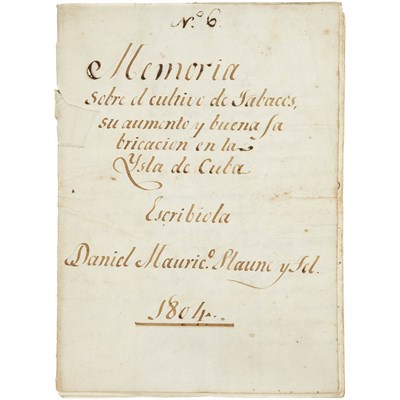 N.º 6.
Memoria
sobre el cultivo de Tabacos,
su aumento y buena fa
bricacion en la
Ysla de Cuba
Escribiola
Daniel Mauric.º y
1804.